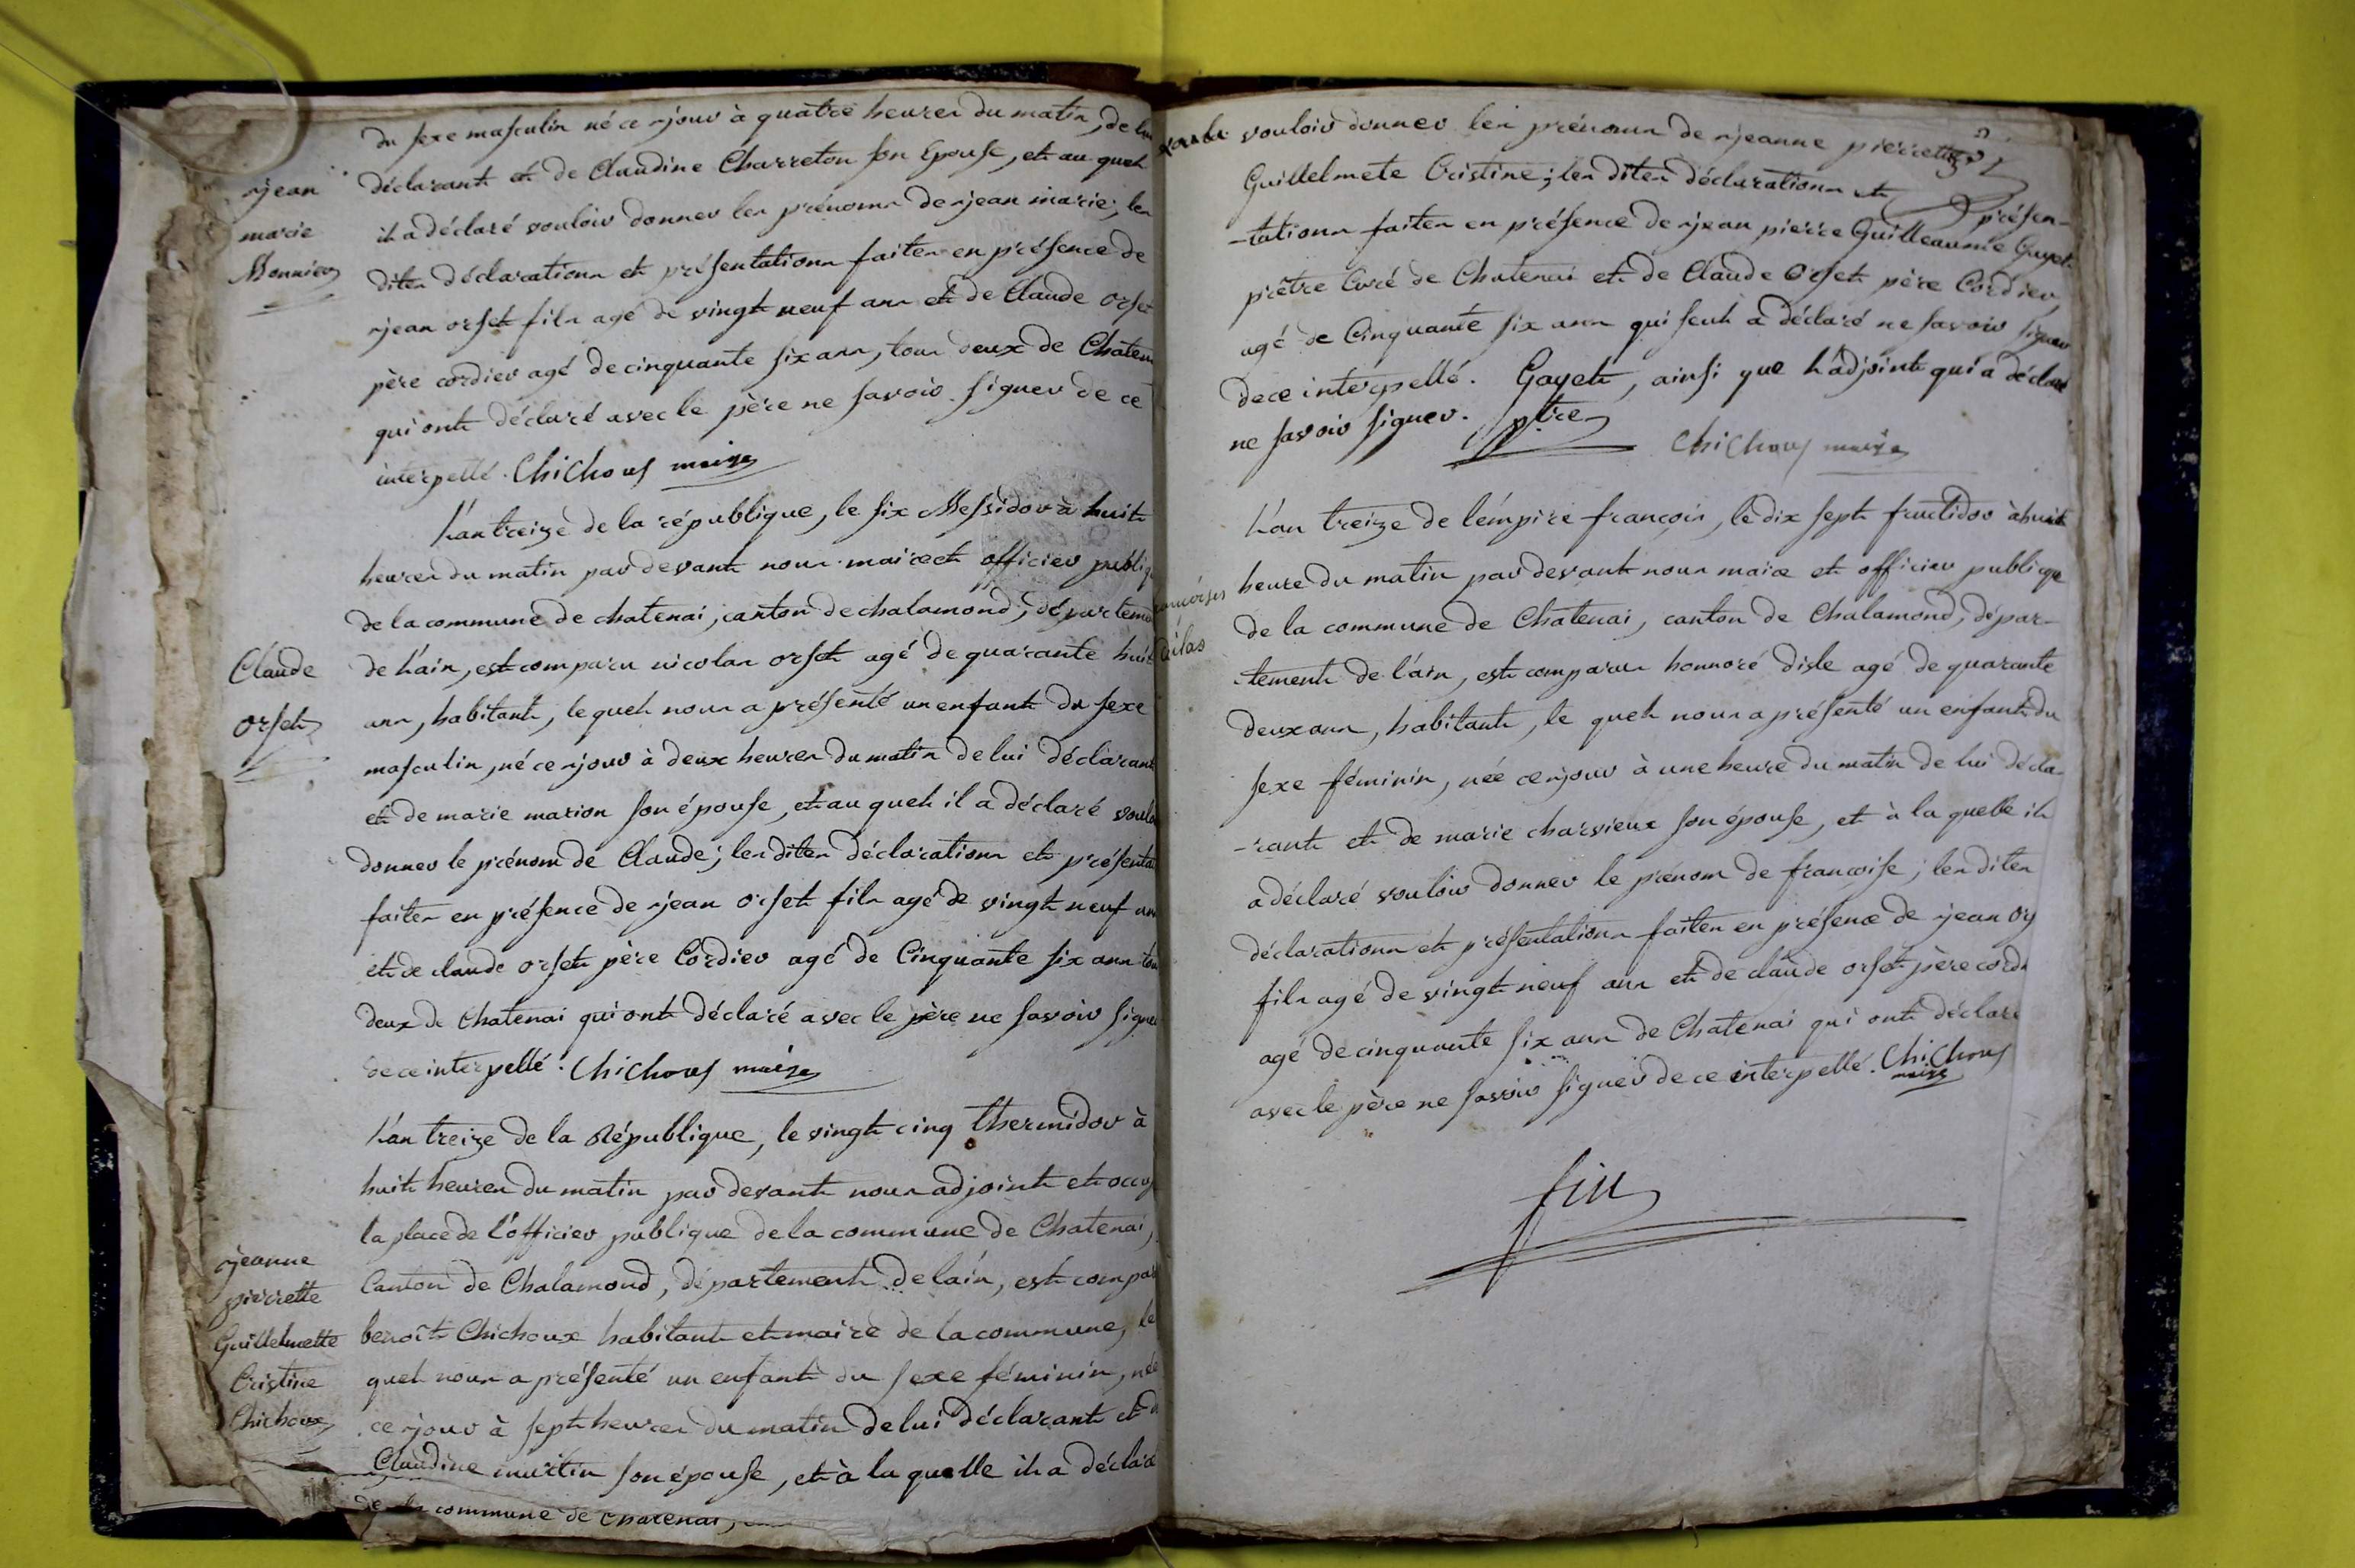 du sexe masculin né ce jour à quatre heures du matin, de lui
déclarant et de Claudine Charreton son Epouse, et au quel
il a déclaré vouloir donner les prénoms de jean marie; les
dites déclarations et présentations faites en présence de
jean orset fils agé de vingt neuf ans et de Claude orset
père cordier agé de cinquante six ans, tous deux de Chaten
qui ont déclaré avec le père ne savoir signer de ce
interpellé. Chichoux maire
jean
marie
Monnier
L'an treize de la république, le six Messidor à huit
heures du matin par devant nous maire et officier publiq
de la commune de chatenai, canton de chalamond, départem
de l'ain, est comparu nicolas orset agé de quarante huit
ans, habitant, le quel nous a présenté un enfant du sexe
masculin, né ce jour à deux heures du matin de lui déclarant
et de marie marion son épouse, et au quel il a déclaré voulo
donner le prénom de Claude; les dites déclarations et présenta
faites en présence de jean orset fils agé de vingt neuf an
et de claude orset père Cordier agé de Cinquante six ans tou
deux de Chatenai qui ont déclaré avec le père ne savoir signe
de ce interpellé. Chichoux maire
Claude
orset
L'an treize de la République, le vingt cinq thermidor à
huit heures du matin par devant nous adjoint et occup
la place de l'officier publique de la commune de Chatenai,
Canton de Chalamond, département de lain, est compar
benoît Chichoux habitant et maire de la commune, le
quel nous a présenté un enfant du sexe féminin, née
ce jour à sept heures du matin de lui déclarant et d
Claudine martin son épouse, et à la quelle il a déclaré
de la commune de Chatenai,
jeanne
pierrette
Guillelmette
Cristine
Chichoux
vouloir donner les prénoms de jeanne pierrette
Guillelmete Cristine; les dites déclarations et présen-
-tations faites en présence de jean pierre Guilleaume Gayet
prêtre Curé de Chatenai et de Claude Orset père Cordier,
agé de Cinquante six ans qui seul a déclaré ne savoir signer
de ce interpellé. Gayet, ainsi que l'adjoint qui a déclaré
ne savoir signer. ptre
Chichoux maire
L'an treize de l'émpire françois, le dix sept fructidor à huit
heure du matin par devant nous maire et officier publique
de la commune de Chatenai, canton de Chalamond, dépar-
-tement de l'ain, est comparu honnoré disle agé de quarante
deux ans, habitant, le quel nous a présenté un enfant du
sexe féminin, née ce jour à une heure du matin de lui décla-
-rant et de marie charvieux son épouse, et à la quelle il
a déclaré vouloir donner le prenom de françoise; les dites
déclarations et présentations faites en présence de jean Ors
fils agé de vingt neuf ans et de claude orset père cordi
agé de cinquante six ans de Chatenai qui ont déclaré
avec le père ne savoir signer de ce interpellé. Chichoux
maire
fin